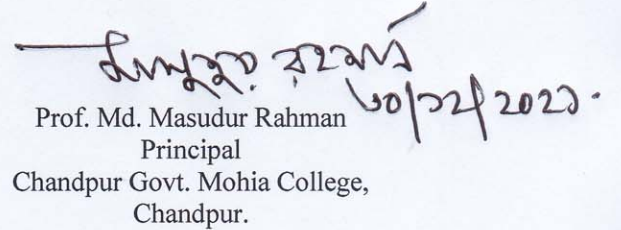 মাসুদুর রহমান
৩০/১২/২০২১.
Prof. Md. Masudur Rahman
Principal
Chandpur Govt. Mohia College,
Chandpur.